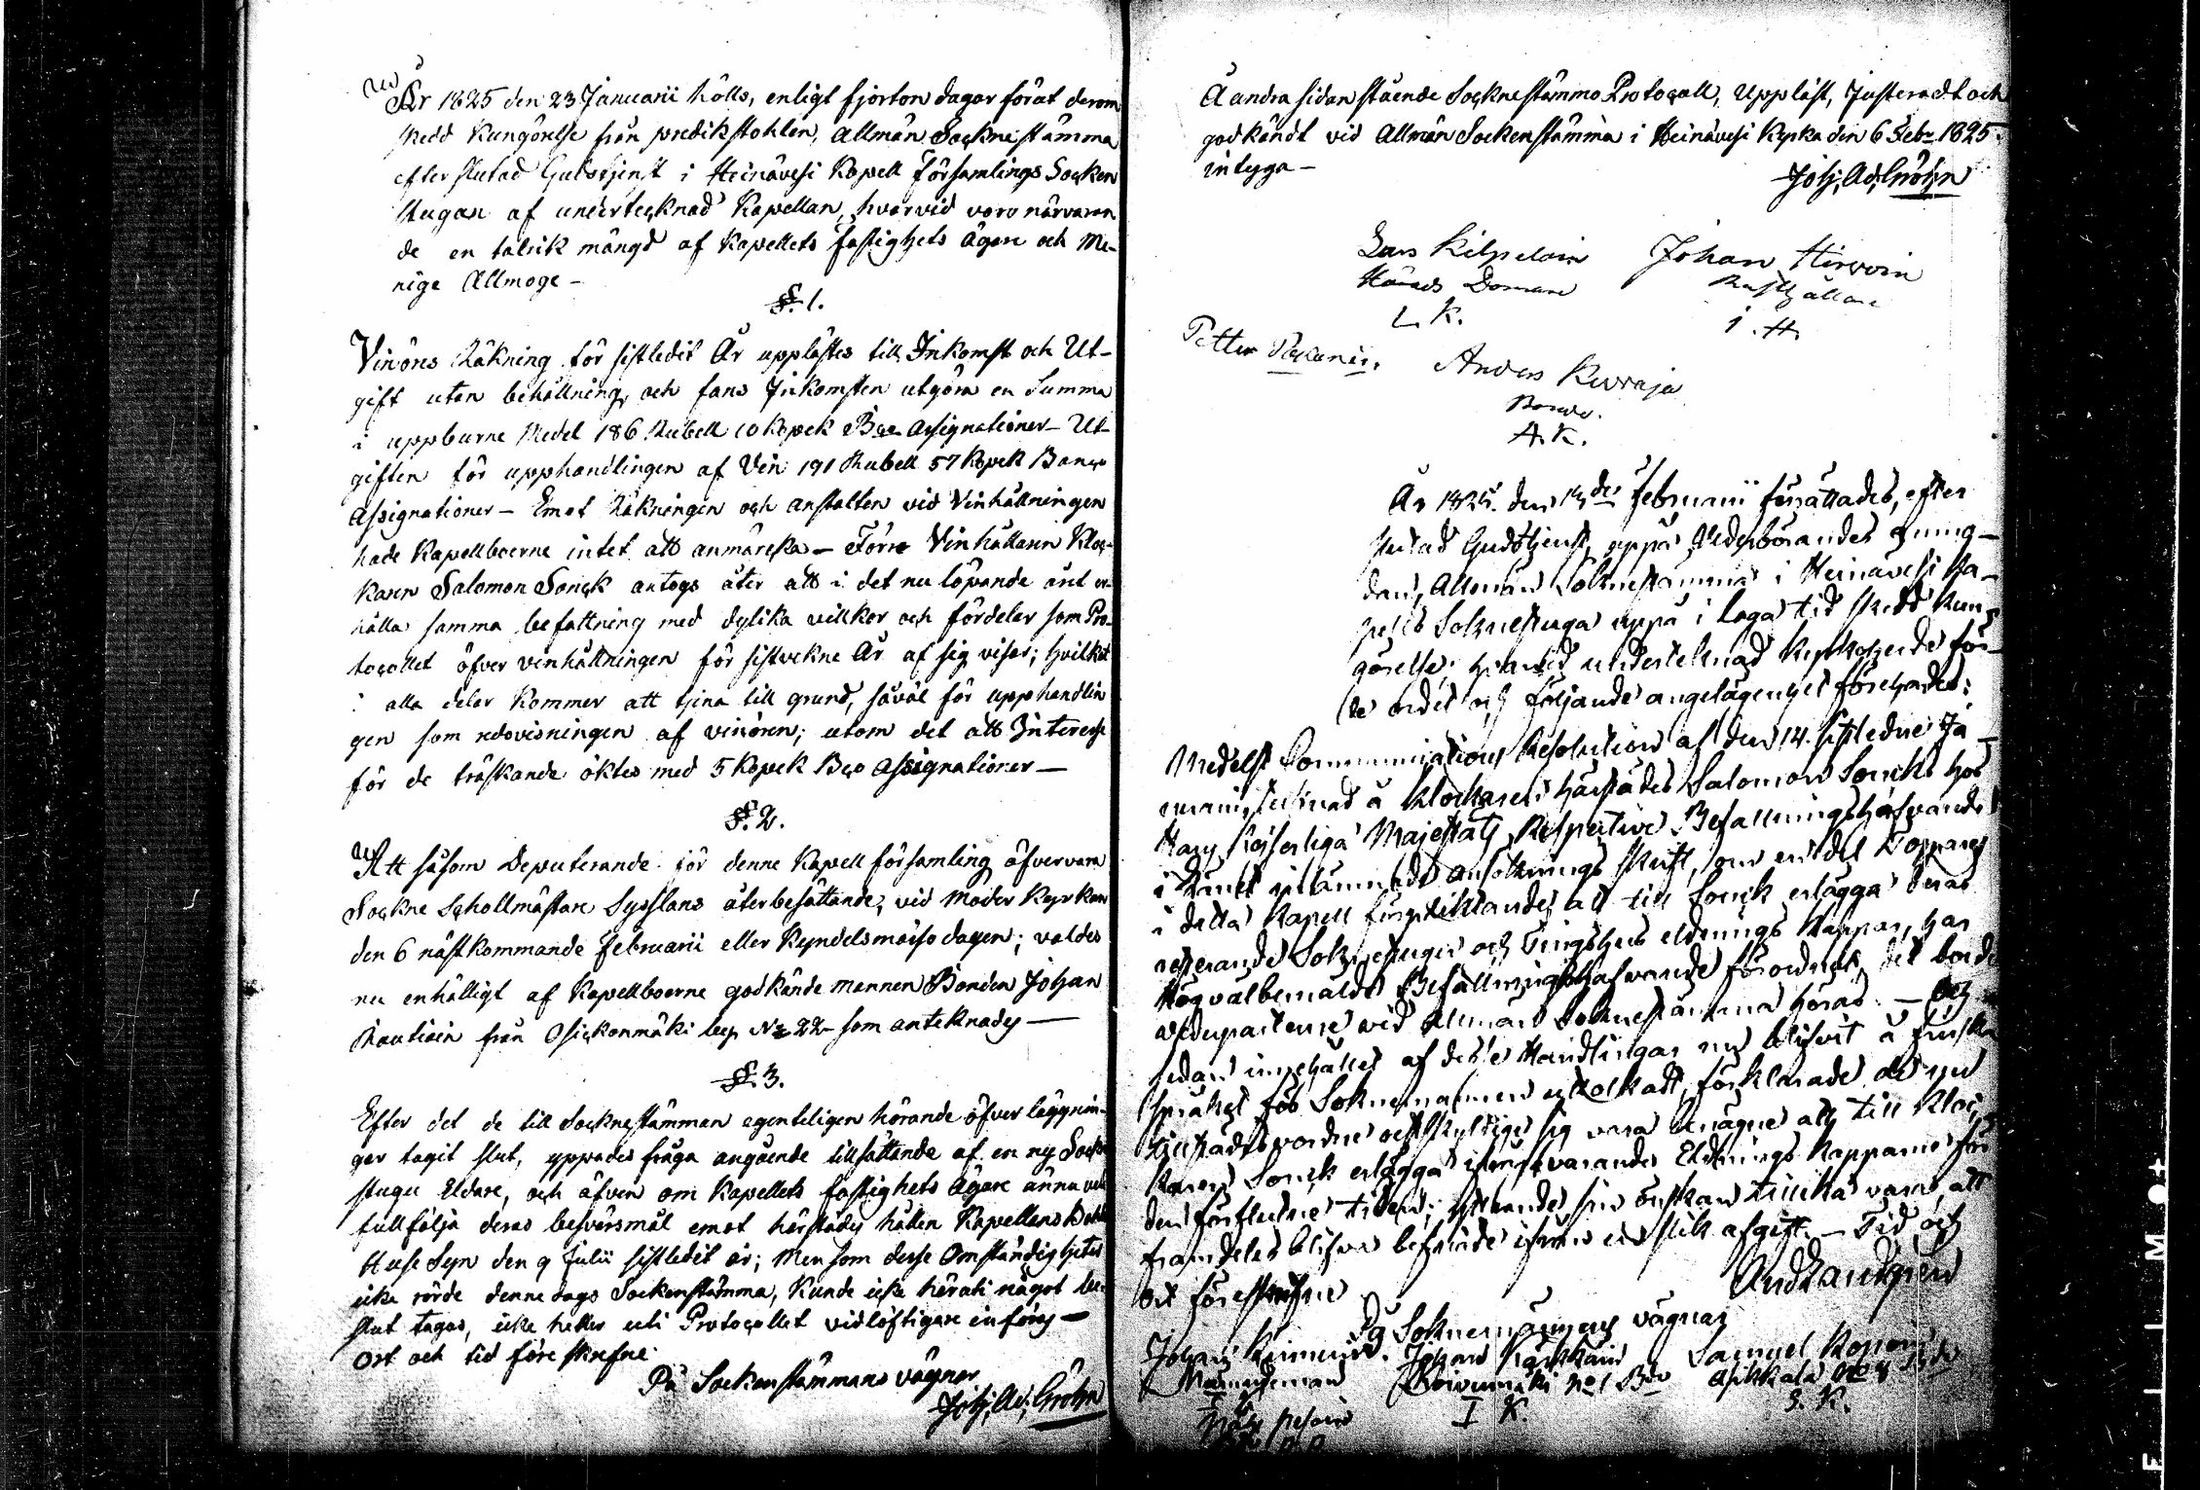 År 1825 den 23 Januarii hölls, enligt fjorton dagar förut derom
skedd Kungörelse från predikstohlen, Allmän Sockne stämma
efter slutad Gudstjenst i Heinävesi Kapell Församlings Socken
stugan af undertecknad Kapellan, hvarvid voro närvaran
de en talrik mängd af Kapellets fastighets Ägare och Me-
nige Allmoge –
§. 1.
Vinöres Räkning för sistledit År upplästes till Inkomst och Ut-
gift utan behållning, och fans Inkomsten utgöra en Summa
i uppburne Medel 186 Rubell 10 Kopek Bco Assignationer – Ut-
giften för upphandlingen af Vin 191 Rubell 57 Kopek Banco
Assignationer – Emot Räkningen och anstalten vid Vinhållningen
hade Kapellboerne intet att anmärcka – Förre Vinhållaren Kloc-
karen Salomon Sonck antogs åter att i det nu löpande året er-
hålla samma befattning med dylika villkor och fördelar som Pro-
tocollet öfver vinhållningen för sistvekne År af sig viser; hvilket
i alla delar Kommer att tjena till grund, såväl för upphandlin
gen som redovisningen af vinören; utom det att Interesse
för de träskande öktes med 5 Kopek Bco Assignationer –
§. 2.
Att såsom Deputerande för denne Kapell församling öfvervara
Sockne Scholmästare Sysslans återbesättande, vid Moder Kyrkan
den 6 nästkommande Februarii eller Kyndelsmässo dagen; valdes
nu enhälligt af Kapellboerne godkände mannen Bonden Johan
Rautiain från Osickonmäki by No 22 – som antecknades –
§. 3.
Efter det de till Sockne stämman egenteligen hörande öfverläggnin-
gar tagit slut, yppades fråga angående tillsättande af en ny Sockne
stugu Eldare, och äfven om Kapellets fastighets Ägare ännu vele
fullfölja deras besvärsmål emot härstädes hållen Kapellans Bohls
Huse Syn den 9 Julii sistledit år; Men som desse Omständigheter
icke rörde denne dags Sockenstämma, Kunde icke häruti något be-
slut tagas, icke heller uti Protocollet vidlöftigare införas –
Ort och tid före skrefne
På Sockenstämmans vägnar
Joh: Ad: Gröhn
Å andra sidan stående Sockne stämmo Protocoll, Uppläst, Justeradt och
godkändt vid Allmän Sockenstämma i Heinävesi Kyrka den 6 Febr. 1825
intyga –
Joh: Ad: Gröhn
Lars Kilpelain
Johan Hirvoin
Härads Domare
Rusthållare
L. K.
I. H.
Petter
Anders Kurvaja
Bonde.
A. K.
År 1825. den 13de Februarii förrättades, efter
slutad Gudstjenst, uppå Vederbörandes gunn-
dan, Allmän Soknestämma i Heinävesi Ka-
pells Soknestuga uppå i laga tid skedd kun-
görelse; hvarvid undertecknad Kyrkoherde för-
de ordet och följande angelägenhet förehades:
Medelst Communications Resolution af den 14. sistledne Ja-
nuarii, tecknad å Klockaren härstädes Salomon Soncks hos
Hans Kejserliga Majestäts Respective Befallningshafvande
i Länet inlämnade ansöknings skrift, om
i detta Kapell att till Sonck erlägga deras
Soknestugu och Tingshus eldnings Kappar, har
Högvälbemälde Befallningshafvande förordnat, det borde
vederparterne vid Allmän Soknestämma höras. – Och
sedan innehållet af desse Handlingar nu blifvit å Finska
språket för Soknemännen uttolkadt, förklarade de nu
tillstädesvordne sig vara att till Kloc-
karen Sonck erlägga Eldnings Kapparne för
den förflutne tiden; sin önskan tillika vara, att
framdeles blifva befriade ifrån en slik afgift. – Tid och
ort föreskrifne
And Landgren
På Soknemännens vägnar
Johan
Johan Kärkkäin
Samuel
Nämndeman
No 1 Bde
No 8
I. K.
S. K.